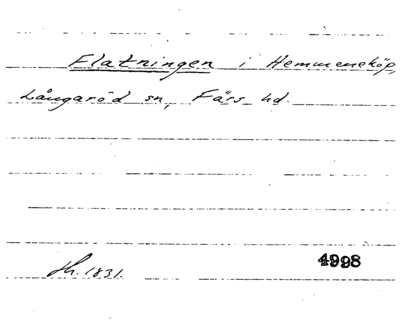 Flatningen i Hemmeneköp,
Långaröd sn, Färs hd.
Sk. 1831.
4998